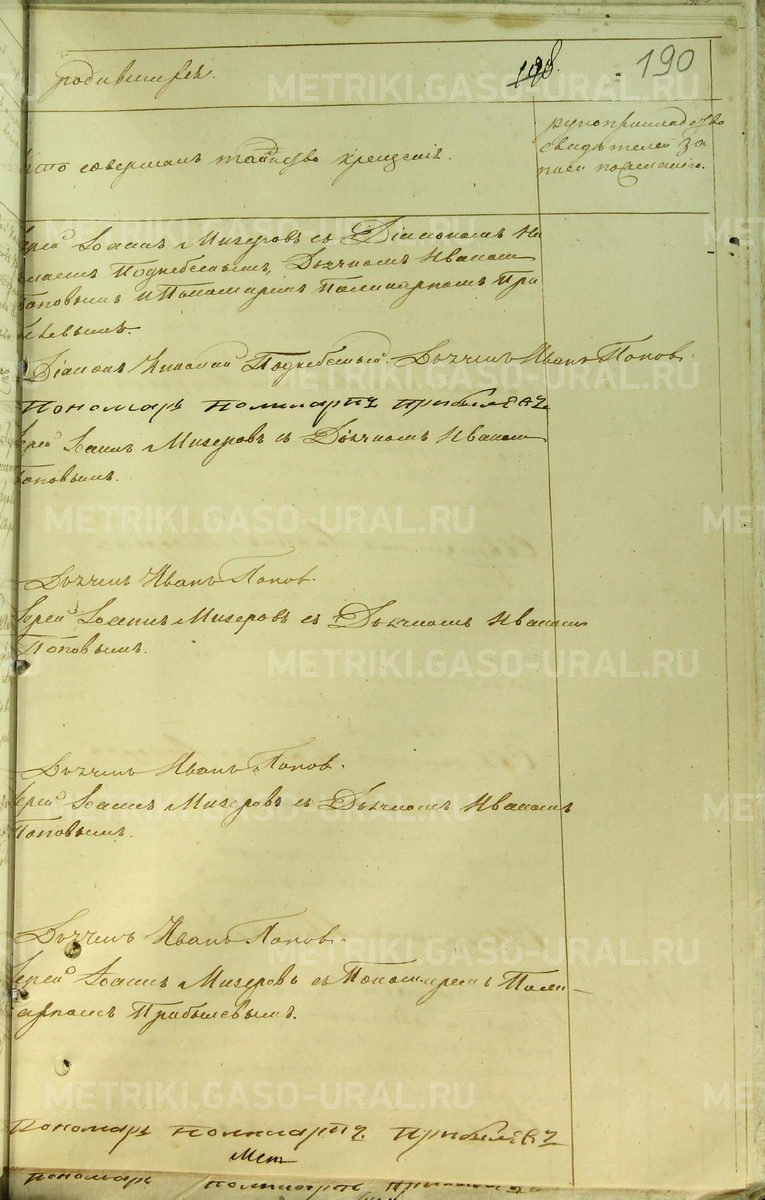 родившихся.
198. 190
Кто совершалъ таинство крещенія.
рукоприкладство
свидѣтелей за
писи по желанію.
Іерей Іоаннъ Мизеровъ съ Діакономъ Ни
колаемъ Поднебеснымъ, Дьячкомъ Иваномъ
Поповымъ и Пономаремъ Поликарпомъ При
былевымъ.
Діаконъ Николай Поднебесный. Дьячекъ Иванъ Попов.
Пономарь Поликарпъ Прибылевъ
Іерей Іоаннъ Мизеровъ съ Дьячкомъ Иваномъ
Поповымъ.
Дьячекъ Иванъ Попов.
Іерей Іоаннъ Мизеровъ съ Дьячкомъ Иваномъ
Поповымъ.
Дьячекъ Иванъ Попов.
Іерей Іоаннъ Мизеровъ съ Дьячкомъ Иваномъ
Поповымъ.
Дьячекъ Иванъ Попов.
Іерей Іоаннъ Мизеровъ съ Пономаремъ Поли
карпомъ Прибылевымъ.
Пономарь Поликарпъ Прибылевъ
Пономарь Поликарпъ
METRIKI.GASO-URAL.RU